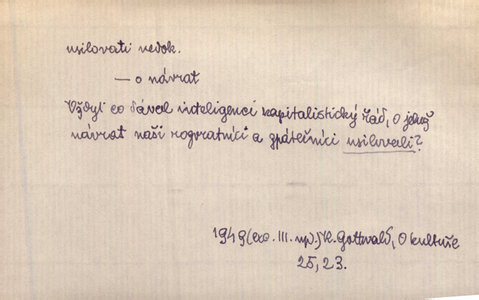 usilovati nedok.
— o návrat
Vždyť co dával inteligenci kapitalistický řád, o jehož
návrat naši rozvratníci a zpátečníci usilovali?
1949 (ex. III. up.) K. Gottwald, O kultuře
25, 23.